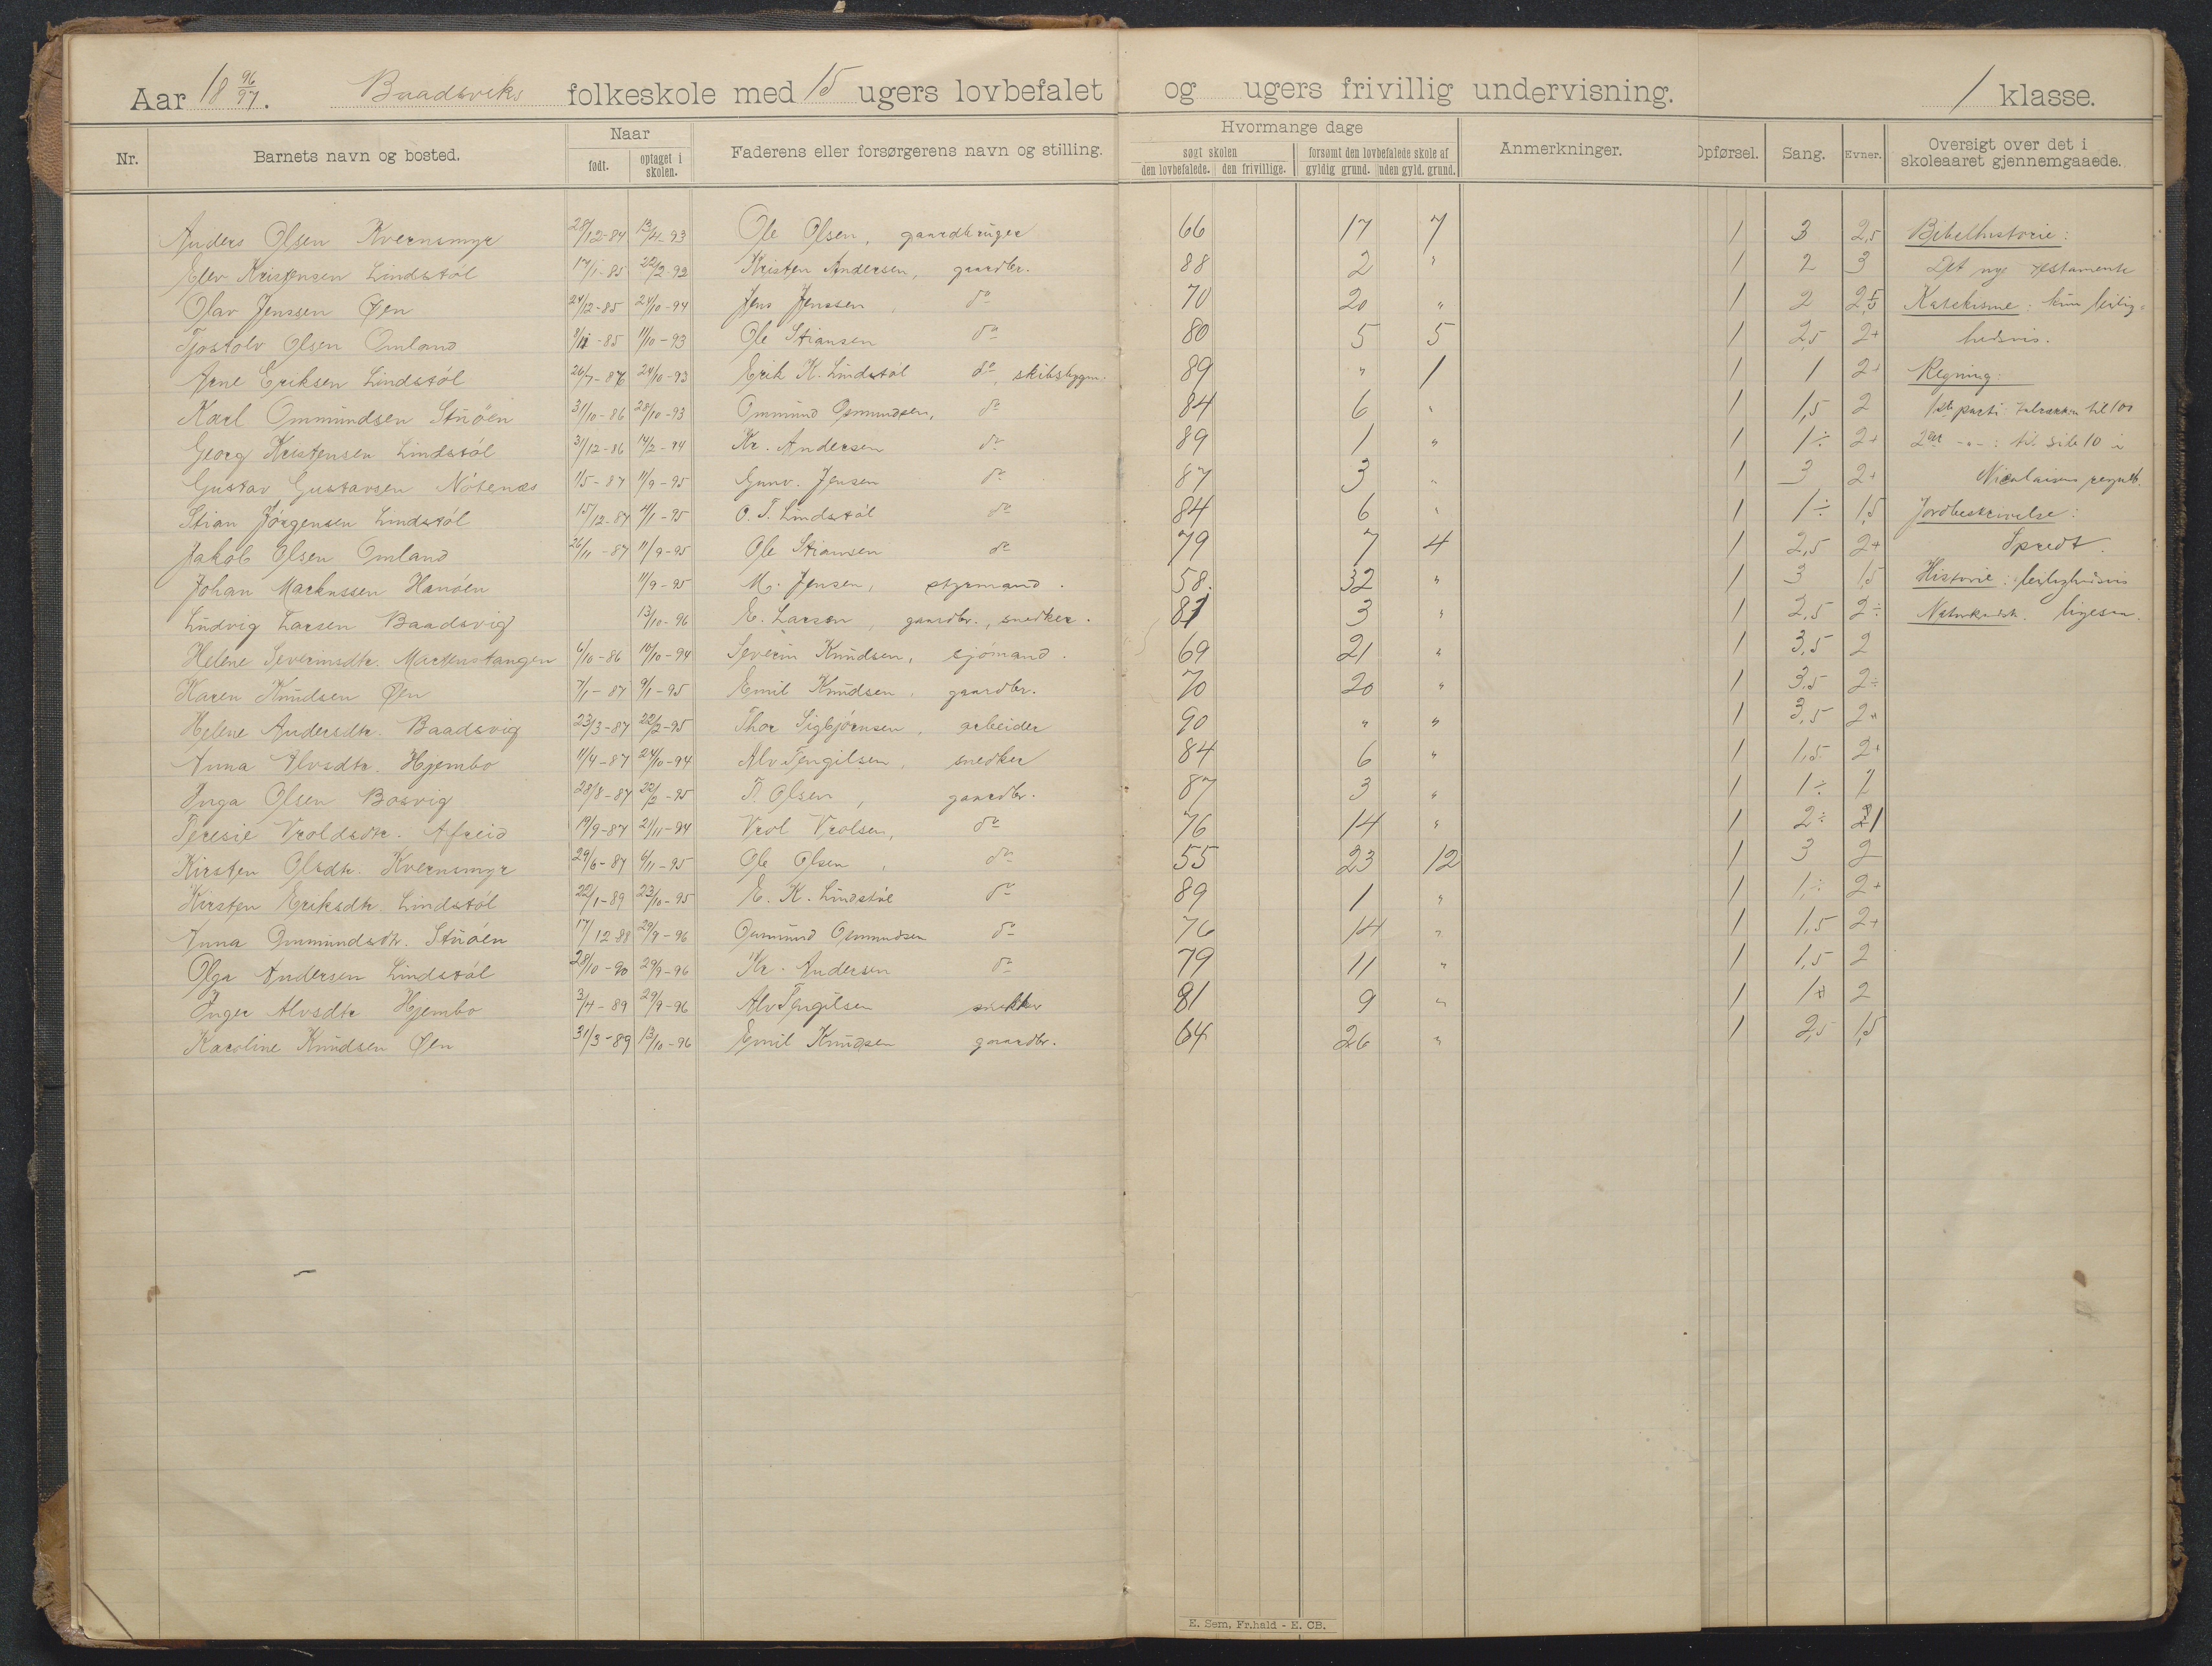 Aar 18 96/97. Baadsviks folkeskole med 15 ugers lovbefalet og ugers frivillig undervisning. 1 klasse.
Nr. Barnets navn og bosted. Naar født. optaget i skolen. Faderens eller forsørgerens navn og stilling. Hvormange dage søgt skolen den lovbefalede. den frivillige. forsømt den lovbefalede skole af gyldig grund. uden gyld. grund. Anmerkninger. Opførsel. Sang. Evner. Oversigt over det i skoleaaret gjennemgaaede.
Anders Olsen Kvernsmyr 28/12-84 13/4-93 Ole Olsen, gaardbruger 66 17 7 1 3 2,5 Bibelhistorie:
Elev Kristensen Lindstøl 17/1-85 22/2-92 Kristen Andersen, gaardbr. 88 2 " 1 2 3 Det nye testamente
Olav Jenssen Øen 24/12-85 24/10-94 Jens Jenssen do 70 20 " 1 2 2,5 Katekisme: kun leilig=
Tjostolv Olsen Omland 11/10-93 Ole Stiansen do 80 5 5 1 2,5 2+ hedsvis.
Arne Eriksen Lindstøl 26/7-86 24/10-93 Erik K. Lindstøl do, skibsbygm. 89 " 1 1 1 2+ Regning
Karl Ommundsen Stuöen 31/10-86 28/10-93 Ommund Ommundsen, do 84 6 " 1 1,5 2 1ste parti talrækken til 100
Georg Kristensen Lindstøl 31/12-86 14/2-94 Kr. Andersen do 89 1 " 1 1÷ 2+ 2det -"-: til side 10 i
Gustav Gustavsen Nótenes 1/5-87 11/9-95 Gunv. Jensen do 87 3 " 1 3 2+ Nicolaisens regneb.
Stian Jórgensen Lindstól 15/12-87 4/1-95 O. T. Lindstøl do 84 6 " 1 1÷ 1,5 Jordbeskrivelse:
Jakob Olsen Omland 26/11-87 11/9-95 Ole Stiansen do 79 7 4 1 2,5 2+ Spredt.
Johan Markussen Hanóen 11/9-95 M. Jensen, styrmand. 58. 32 " 1 3 1,5 Historie: leilighedsvis
Ludvig Larsen Baadsvig 13/10-96 E. Larsen, gaardbr., snedker. 87 3 " 1 2,5 2÷ Naturkundsk. ligesaa.
Helene Severinsdtr. Martenstangen 6/10-86 10/10-94 Severin Knudsen, sjómand. 69 21 " 1 3,5 2
Karen Knudsen Øen 7/1-87 9/1-95 Emil Knudsen, gaardbr. 70 20 " 1 3,5 2÷
Helene Andersdtr. Baadsvig 23/3-87 22/2-95 Thor Sigbjórnsen, arbeider 90 " " 1 3,5 2+
Anna Alvsdtr. Hjembo 11/4-87 24/10-94 Alv Tengilsen, snedker 84 6 " 1 1,5 2+
Inga Olsen Bosvig 28/8-87 22/2-95 T. Olsen, gaardbr. 87 3 " 1 1÷ 2
Teresie Vroldsdtr. Afreid 19/9-87 21/11-94 Vrol Vrolsen, do 76 14 " 1 2÷ 1
Kirsten Olsdtr. Kvernsmyr 29/6-87 6/11-95 Ole Olsen, do 55 23 12 1 3 2
Kirsten Eriksdtr. Lindstól 22/1-89 23/10-95 E. K. Lindstól do 89 1 " 1 1÷ 2+
Anna Ommundsdtr. Stuóen 17/12-88 29/9-96 Ommund Ommundsen do 76 14 " 1 1,5 2+
Olga Andersen Lindstól 28/10-90 29/9-96 Kr. Andersen do 79 11 " 1 1,5 2
Inger Alvsdtr Hjembo 3/4-89 29/9-96 Alv Tengilsen snekker 81 9 " 1 1+ 2
Karoline Knudsen Øen 31/3-89 13/10-96 Emil Knudsen gaardbr. 64 26 " 1 2,5 1,5
E. Sem, Fr.hald - E. CB.